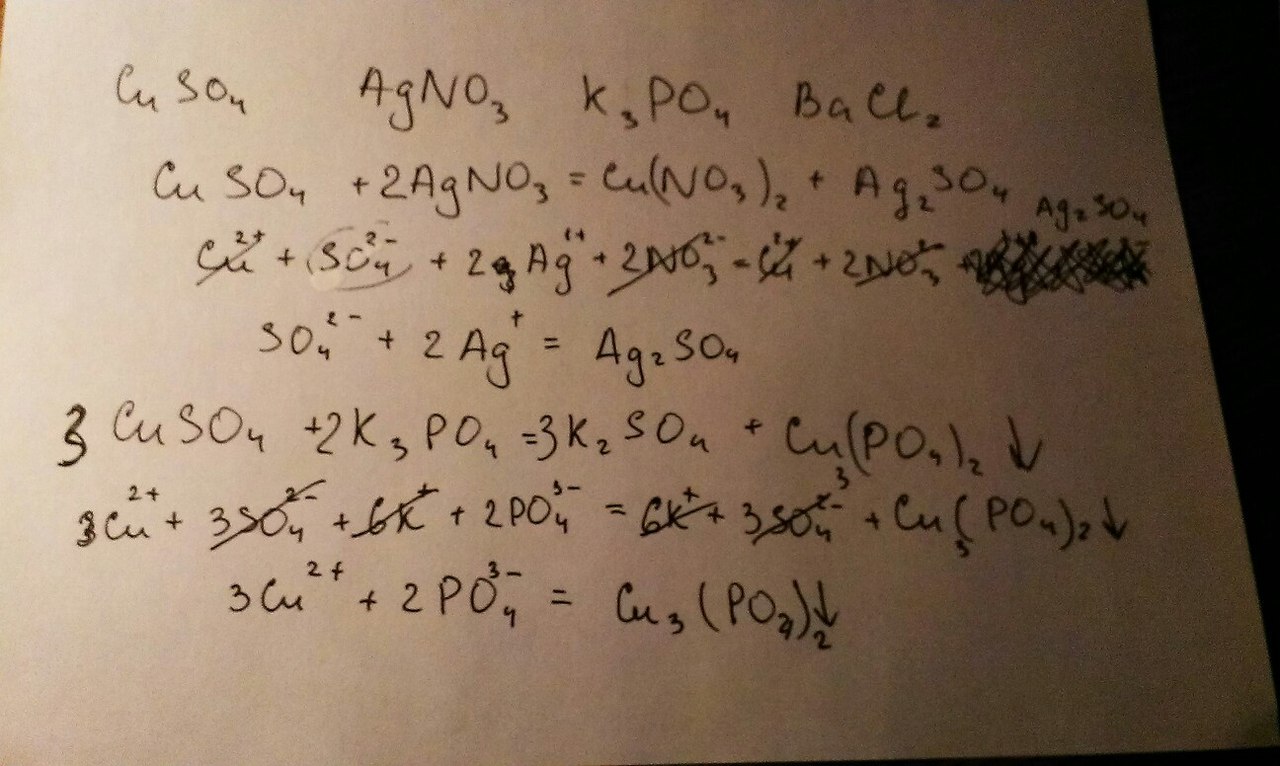 CuSO₄ AgNO₃ K₃PO₄ BaCl₂
CuSO₄ + 2AgNO₃ = Cu(NO₃)₂ + Ag₂SO₄
Cu²⁺ + SO₄²⁻ + 2Ag¹⁺ + 2NO₃²⁻ = Cu²⁺ + 2NO₃⁻ + Ag₂SO₄
SO₄²⁻ + 2Ag⁺ = Ag₂SO₄
3CuSO₄ + 2K₃PO₄ = 3K₂SO₄ + Cu₃(PO₄)₂↓
3Cu²⁺ + 3SO₄²⁻ + 6K⁺ + 2PO₄³⁻ = 6K⁺ + 3SO₄²⁻ + Cu₃(PO₄)₂↓
3Cu²⁺ + 2PO₄³⁻ = Cu₃(PO₄)₂↓